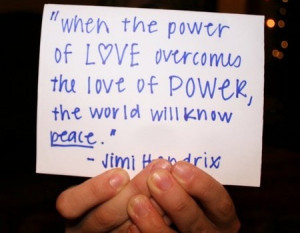 "when the power
of L♡VE overcomes
the love of POWER,
the world will know
peace."
- Jimi Hendrix